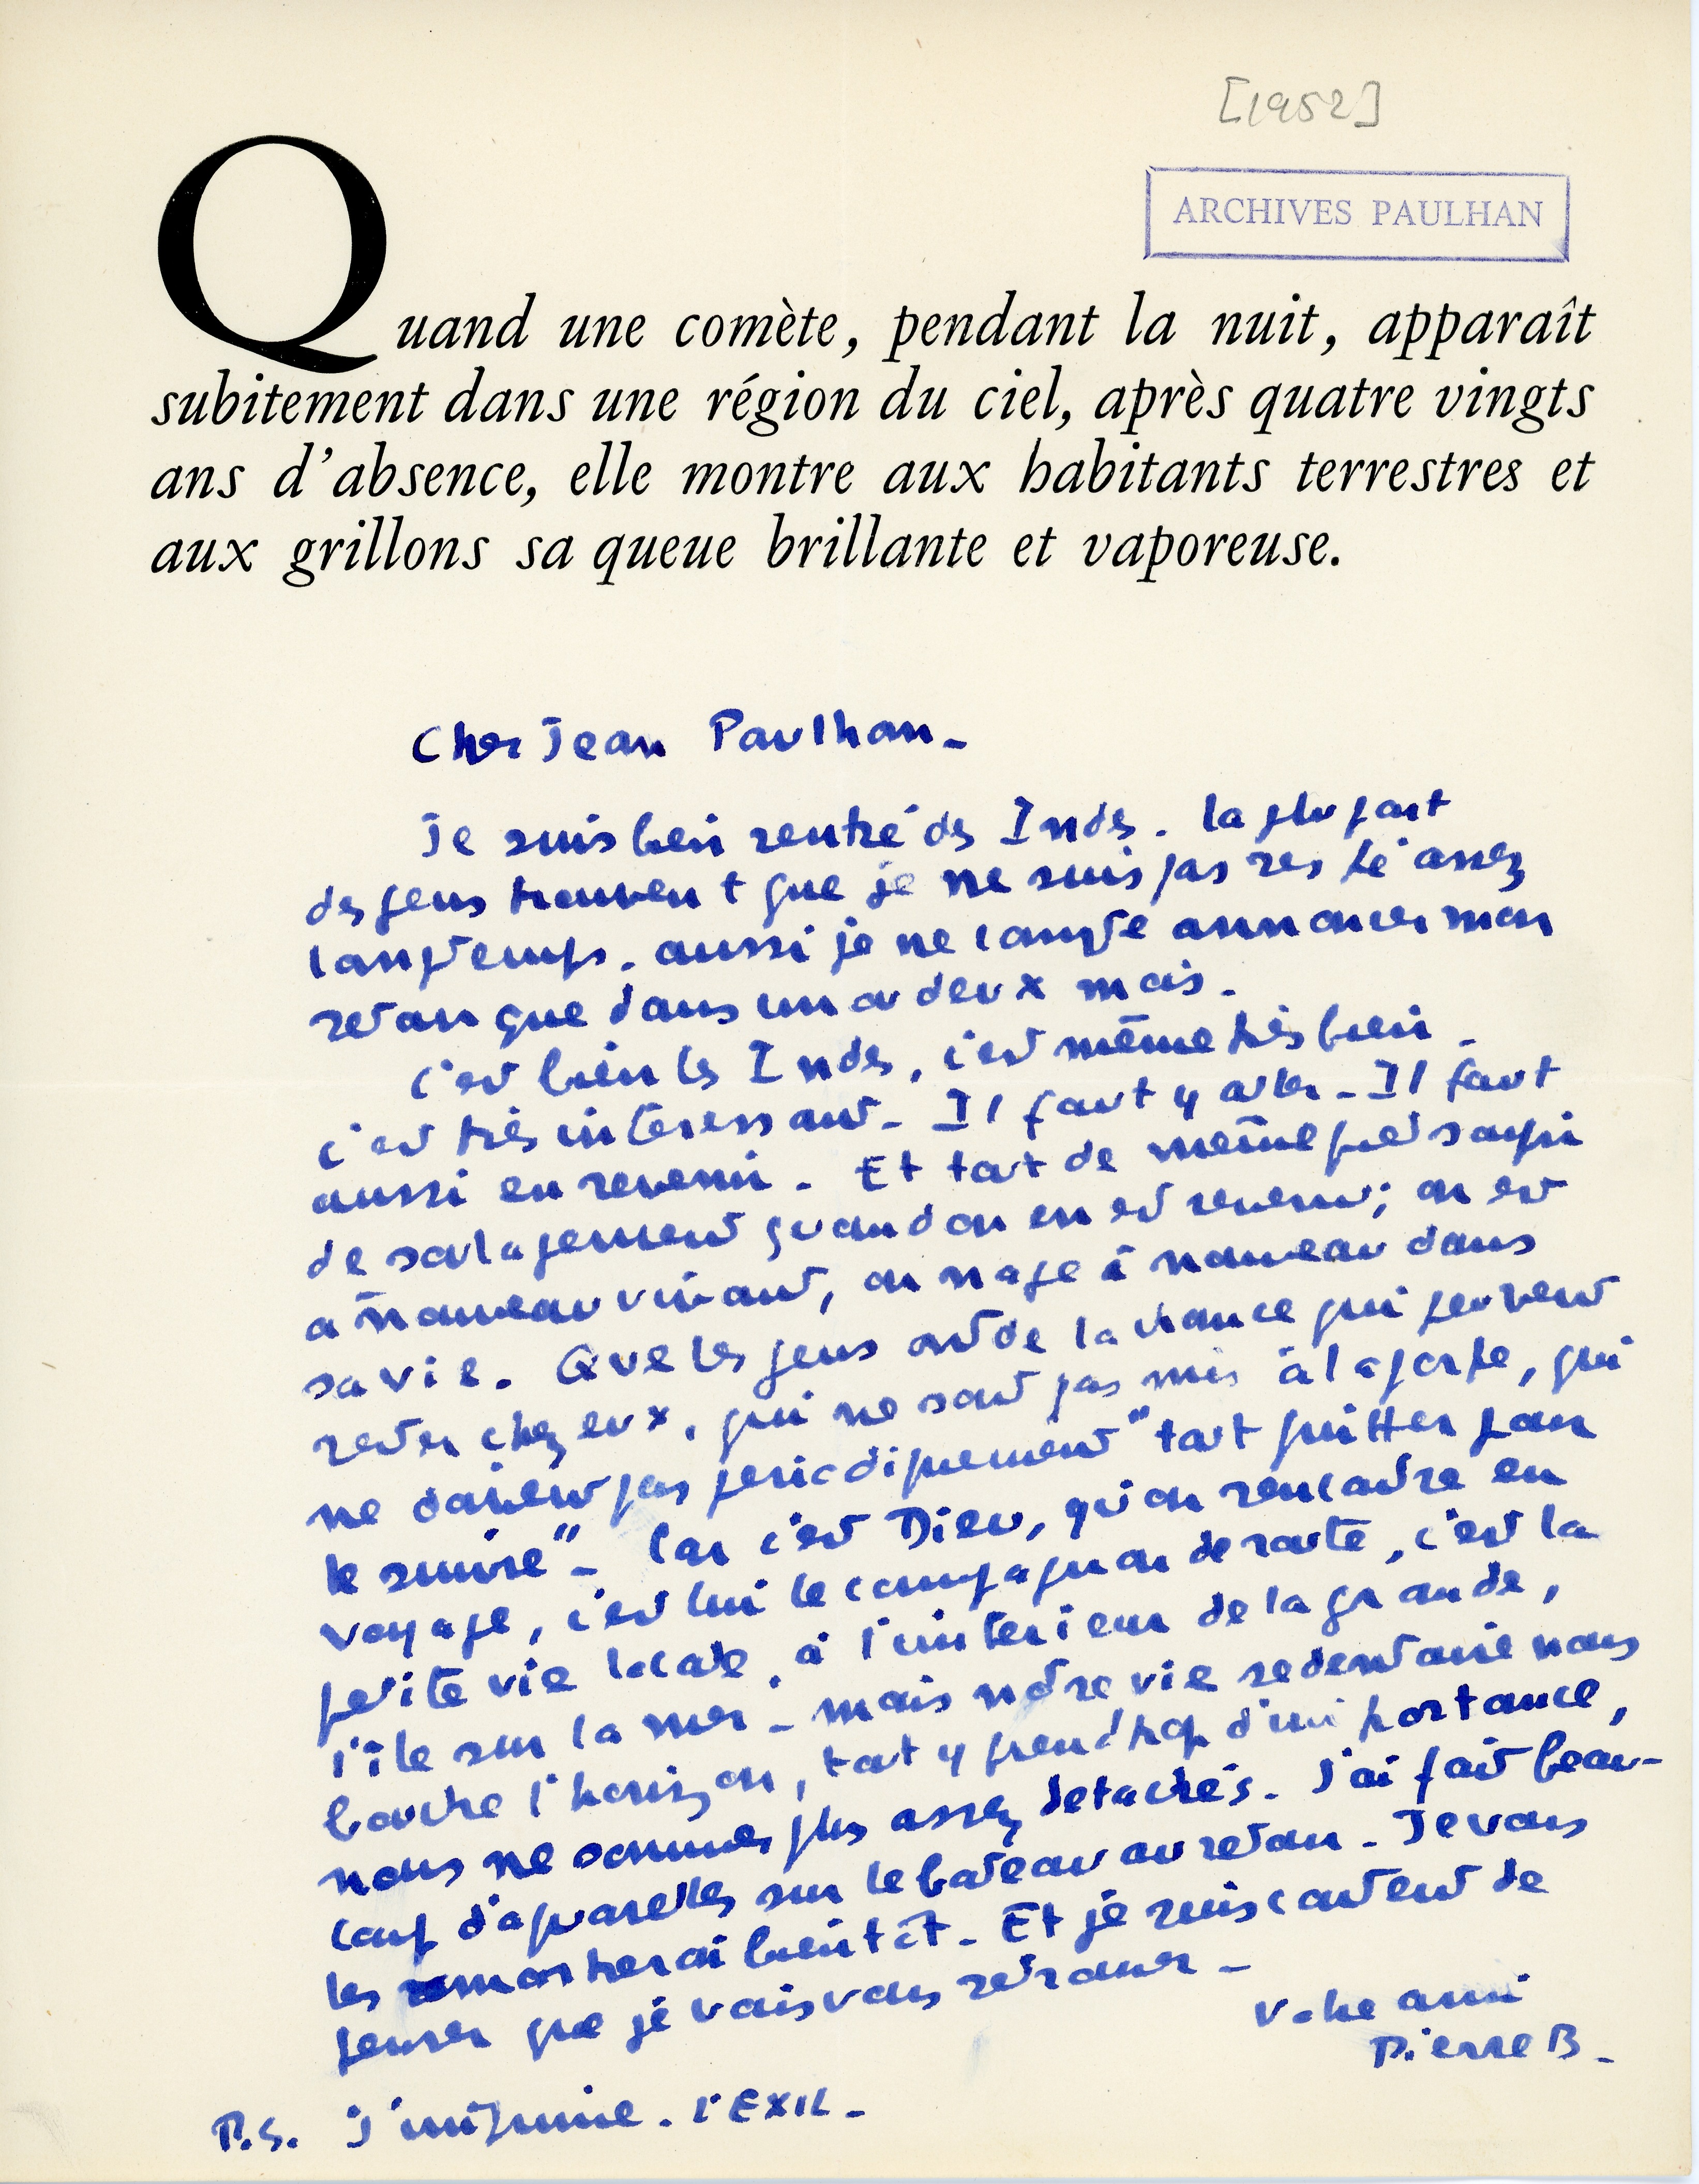 [1952]
ARCHIVES PAULHAN
Quand une comète, pendant la nuit, apparaît
subitement dans une région du ciel, après quatre vingts
ans d'absence, elle montre aux habitants terrestres et
aux grillons sa queue brillante et vaporeuse.
Cher Jean Paulhan_
Je suis bien rentré des Indes. la plupart
des gens trouvent que je ne suis pas resté assez
longtemps. aussi je ne compte annoncer mon
retour que dans un ou deux mois.
c'est bien les Indes, c'est même très bien_
c'est très intéressant_ Il faut y aller_ Il faut
aussi en revenir. Et tout de même quel soupir
de soulagement quand on en est revenu; on est
à nouveau vivant, on nage à nouveau dans
sa vie. Que les gens ont de la chance qui peuvent
rester chez eux, qui ne sont pas mis à la porte, qui
ne doivent pas periodiquement "tout quitter pour
le suivre"_ Car c'est Dieu, qu'on rencontre en
voyage, c'est lui le compagnon de route, c'est la
petite vie locale, à l'interieur de la grande,
l'île sur la mer_ mais notre vie sedentaire nous
bouche l'horizon, tout y prend trop d'importance,
nous ne sommes plus assez detachés. J'ai fait beau-
coup d'aquarelles sur le bateau au retour_ Je vous
les montrerai bientôt_ Et je suis content de
penser que je vais vous retrouver_
Votre ami
Pierre B_
P.S. J'imprime. l'EXIL_